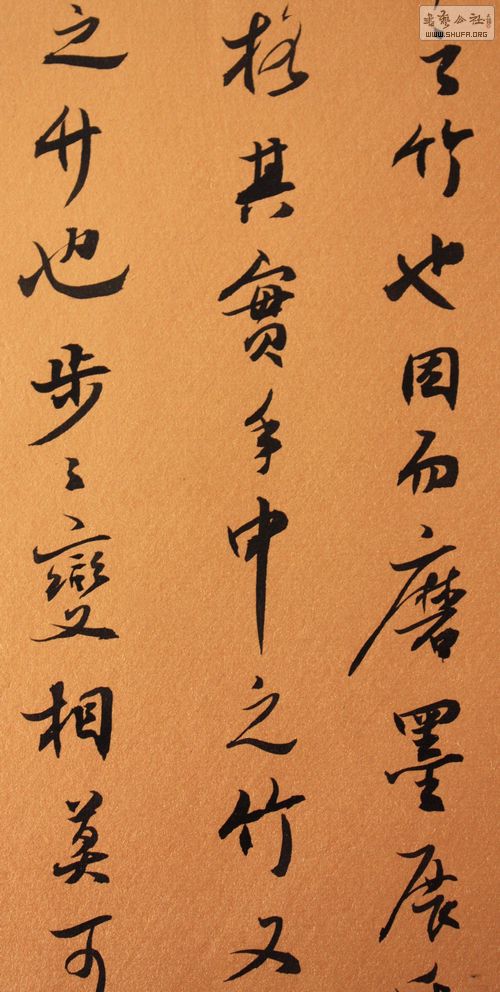 书艺公社
WWW.SHUFA.ORG
竹也因而磨墨展
格其實手中之竹又
之竹也步々變相莫可